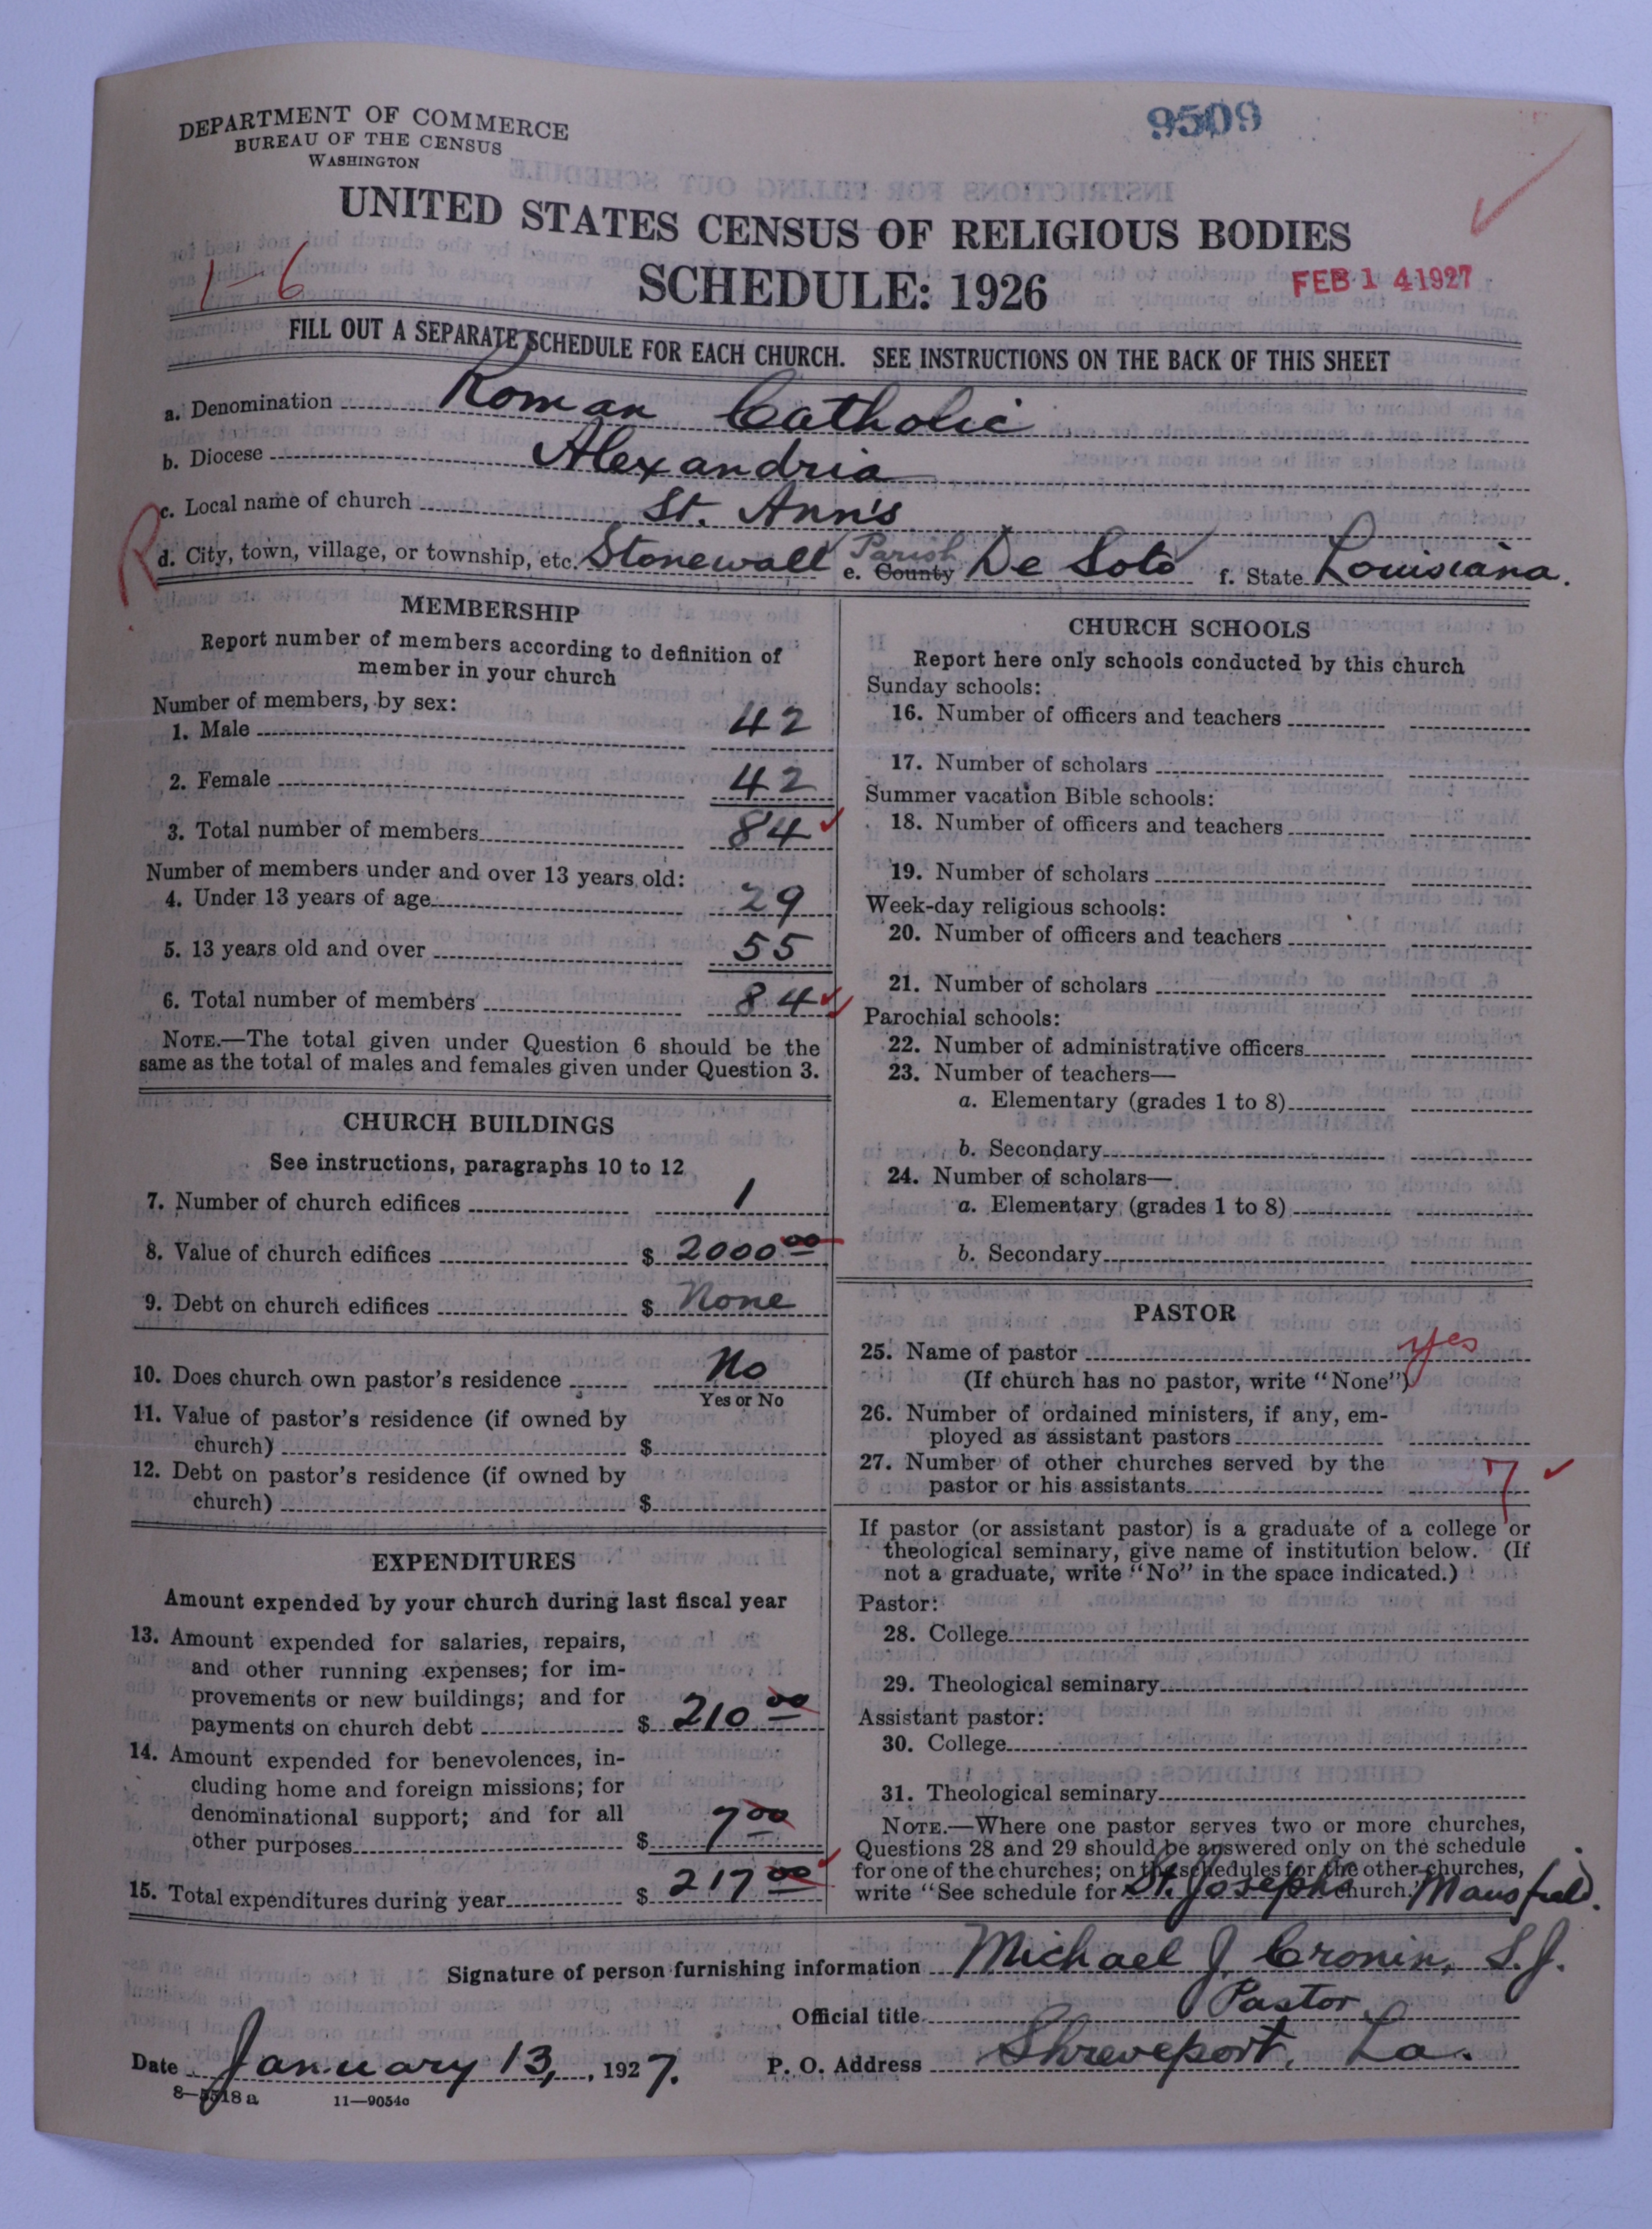 DEPARTMENT OF COMMERCE
BUREAU OF THE CENSUS
WASHINGTON
9509
UNITED STATES CENSUS OF RELIGIOUS BODIES
1-6
SCHEDULE: 1926
FEB 14 1927
FILL OUT A SEPARATE SCHEDULE FOR EACH CHURCH. SEE INSTRUCTIONS ON THE BACK OF THIS SHEET
a. Denomination Roman Catholic
b. Diocese Alexandria
c. Local name of church St. Ann's
R
d. City, town, village, or township, etc. Stonewall Parish e. County De Soto f. State Louisiana.
MEMBERSHIP
Report number of members according to definition of
member in your church
Number of members, by sex:
1. Male 42
2. Female 42
3. Total number of members 84
Number of members under and over 13 years old:
4. Under 13 years of age 29
5. 13 years old and over 55
6. Total number of members 84
NOTE.—The total given under Question 6 should be the
same as the total of males and females given under Question 3.
CHURCH BUILDINGS
See instructions, paragraphs 10 to 12
7. Number of church edifices 1
8. Value of church edifices $ 2000 00
9. Debt on church edifices $ None
10. Does church own pastor's residence No
Yes or No
11. Value of pastor's residence (if owned by
church) $
12. Debt on pastor's residence (if owned by
church) $
EXPENDITURES
Amount expended by your church during last fiscal year
13. Amount expended for salaries, repairs,
and other running expenses; for im-
provements or new buildings; and for
payments on church debt $ 210 00
14. Amount expended for benevolences, in-
cluding home and foreign missions; for
denominational support; and for all
other purposes $ 7 00
15. Total expenditures during year $ 217 00
CHURCH SCHOOLS
Report here only schools conducted by this church
Sunday schools:
16. Number of officers and teachers
17. Number of scholars
Summer vacation Bible schools:
18. Number of officers and teachers
19. Number of scholars
Week-day religious schools:
20. Number of officers and teachers
21. Number of scholars
Parochial schools:
22. Number of administrative officers
23. Number of teachers—
a. Elementary (grades 1 to 8)
b. Secondary
24. Number of scholars—
a. Elementary (grades 1 to 8)
b. Secondary
PASTOR
25. Name of pastor yes
(If church has no pastor, write "None")
26. Number of ordained ministers, if any, em-
ployed as assistant pastors
27. Number of other churches served by the
pastor or his assistants 7
If pastor (or assistant pastor) is a graduate of a college or
theological seminary, give name of institution below. (If
not a graduate, write "No" in the space indicated.)
Pastor:
28. College
29. Theological seminary
Assistant pastor:
30. College
31. Theological seminary
NOTE.—Where one pastor serves two or more churches,
Questions 28 and 29 should be answered only on the schedule
for one of the churches; on the schedules for the other churches,
write "See schedule for St. Joseph's church. Mansfield.
Signature of person furnishing information Michael J. Cronin, S.J.
Official title Pastor
Date January 13, 1927. P. O. Address Shreveport, La.
8—5518a 11—9054c